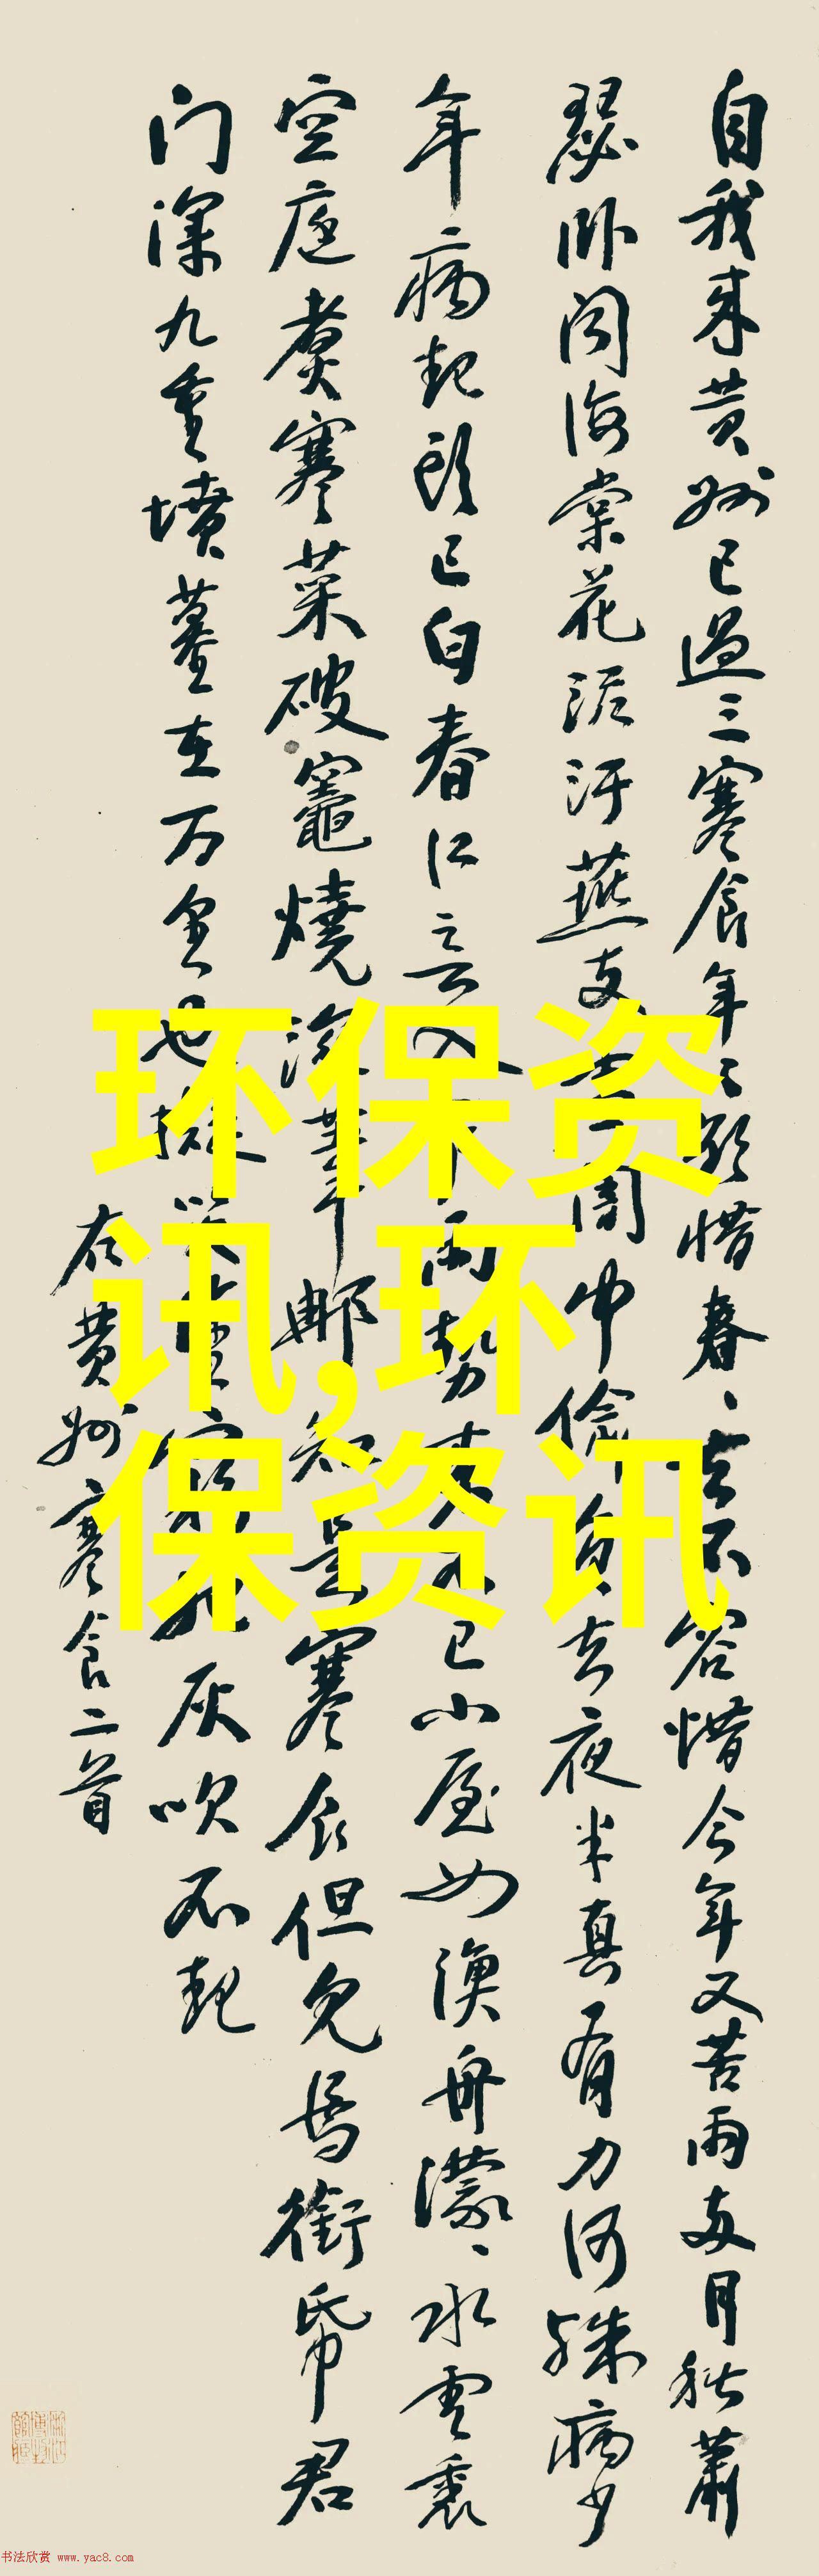 自我来黄州已過三寒食年々欲惜春、去不容惜今年又苦雨兩月秋蕭
瑟卧闻海棠花泥汙燕支雪闇中偷負去夜半真有力何殊病少
年病起頭已白春江欲入户雨勢来不已小屋如漁舟濛、水雲裏
空庖煮寒菜破竈燒湿葦那知是寒食但见烏銜帋君
门深九重墳墓在万里也拟哭塗穷死灰吹不起
右黄州寒食二首
环保资
讯,环
保资讯
书法欣赏 www.yac8.com